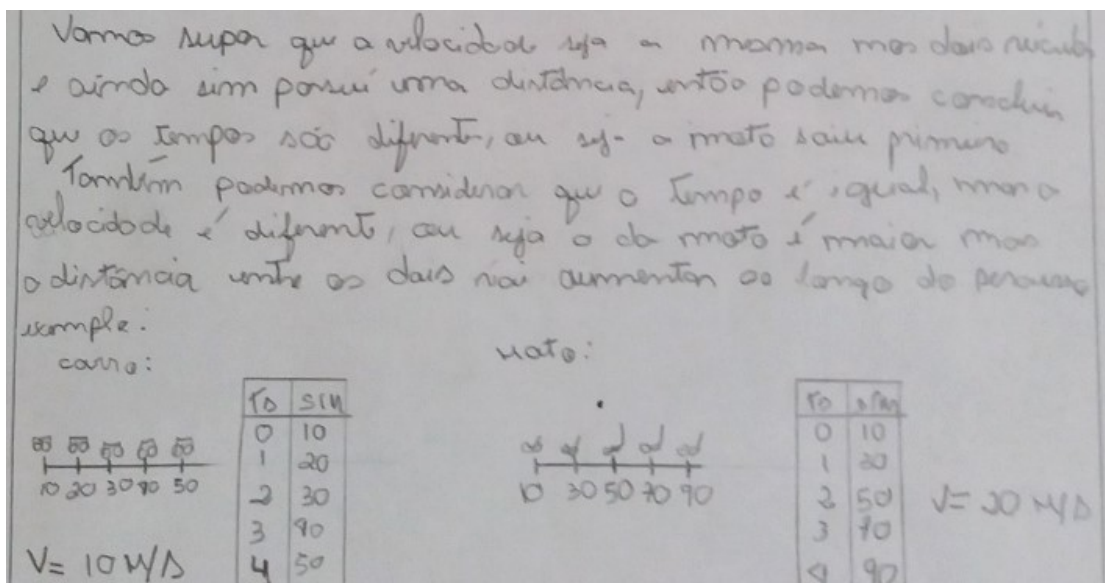 Vamos supor que a velocidade seja a mesma mas dois veículos
e ainda sim possui uma distância, então podemos concluir
que os tempos são diferente, ou seja a moto saiu primeiro
Também podemos considerar que o tempo é igual, mas a
velocidade é diferente, ou seja o da moto é maior mas
a distância entre os dois vai aumentar ao longo do percurso
exemplo:
carro: moto:
10 20 30 40 50
T(s) S(m)
0 10
1 20
2 30
3 40
4 50
V= 10 M/s
10 30 50 70 90
T(s) S(m)
0 10
1 30
2 50
3 70
4 90
V= 20 M/s